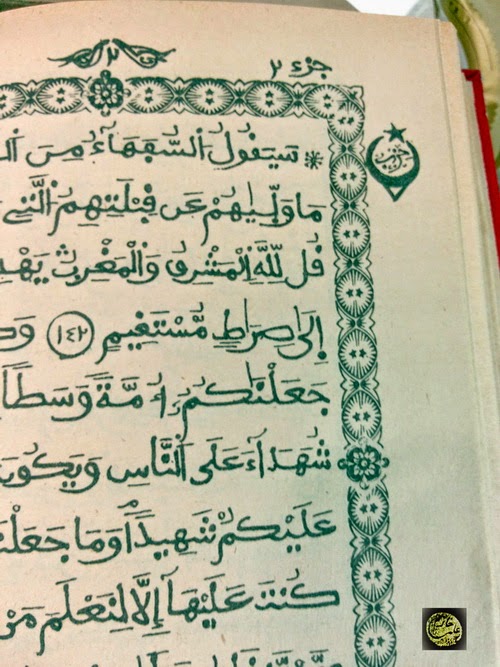 ٢
جزء ٢
۞ سَيَقُولُ السُّفَهَآءُ مِنَ
مَا وَلَّيٰهُمْ عَن قِبْلَتِهِمُ الَّتِي
قُل لِّلَّهِ الْمَشْرِقُ وَالْمَغْرِبُ يَهْدِ
إِلَىٰ صِرَاطٍ مُّسْتَقِيمٍ ١٤٢
جَعَلْنَٰكُمُۥٓ أُمَّةً وَسَطًا
شُهَدَآءَ عَلَى النَّاسِ وَيَكُونَ
عَلَيْكُمْ شَهِيدًا وَمَا جَعَلْنَ
كُنتَ عَلَيْهَآ إِلَّا لِنَعْلَمَ مَنْ